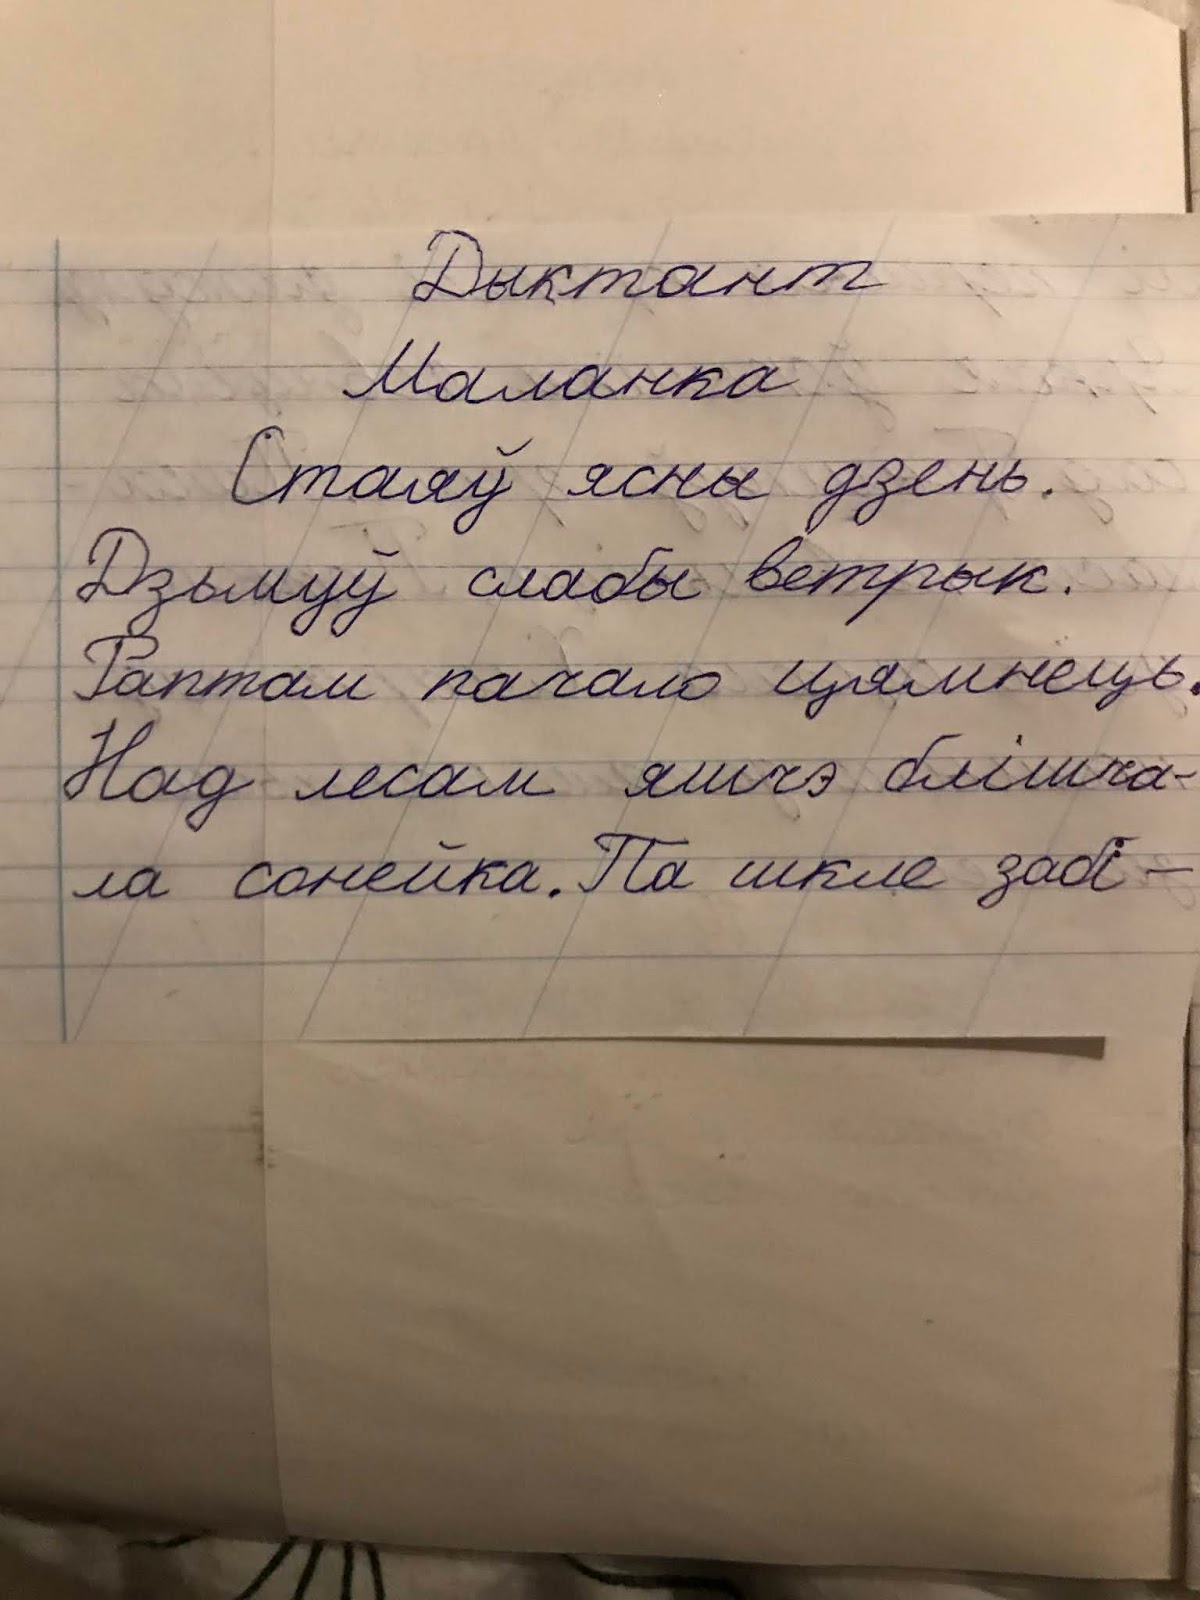 Дыктант
Маланка
Стаяў ясны дзень.
Дзьмуў слабы ветрык.
Раптам пачало цямнець.
Над лесам яшчэ блішча-
ла сонейка. Па шкле забі-